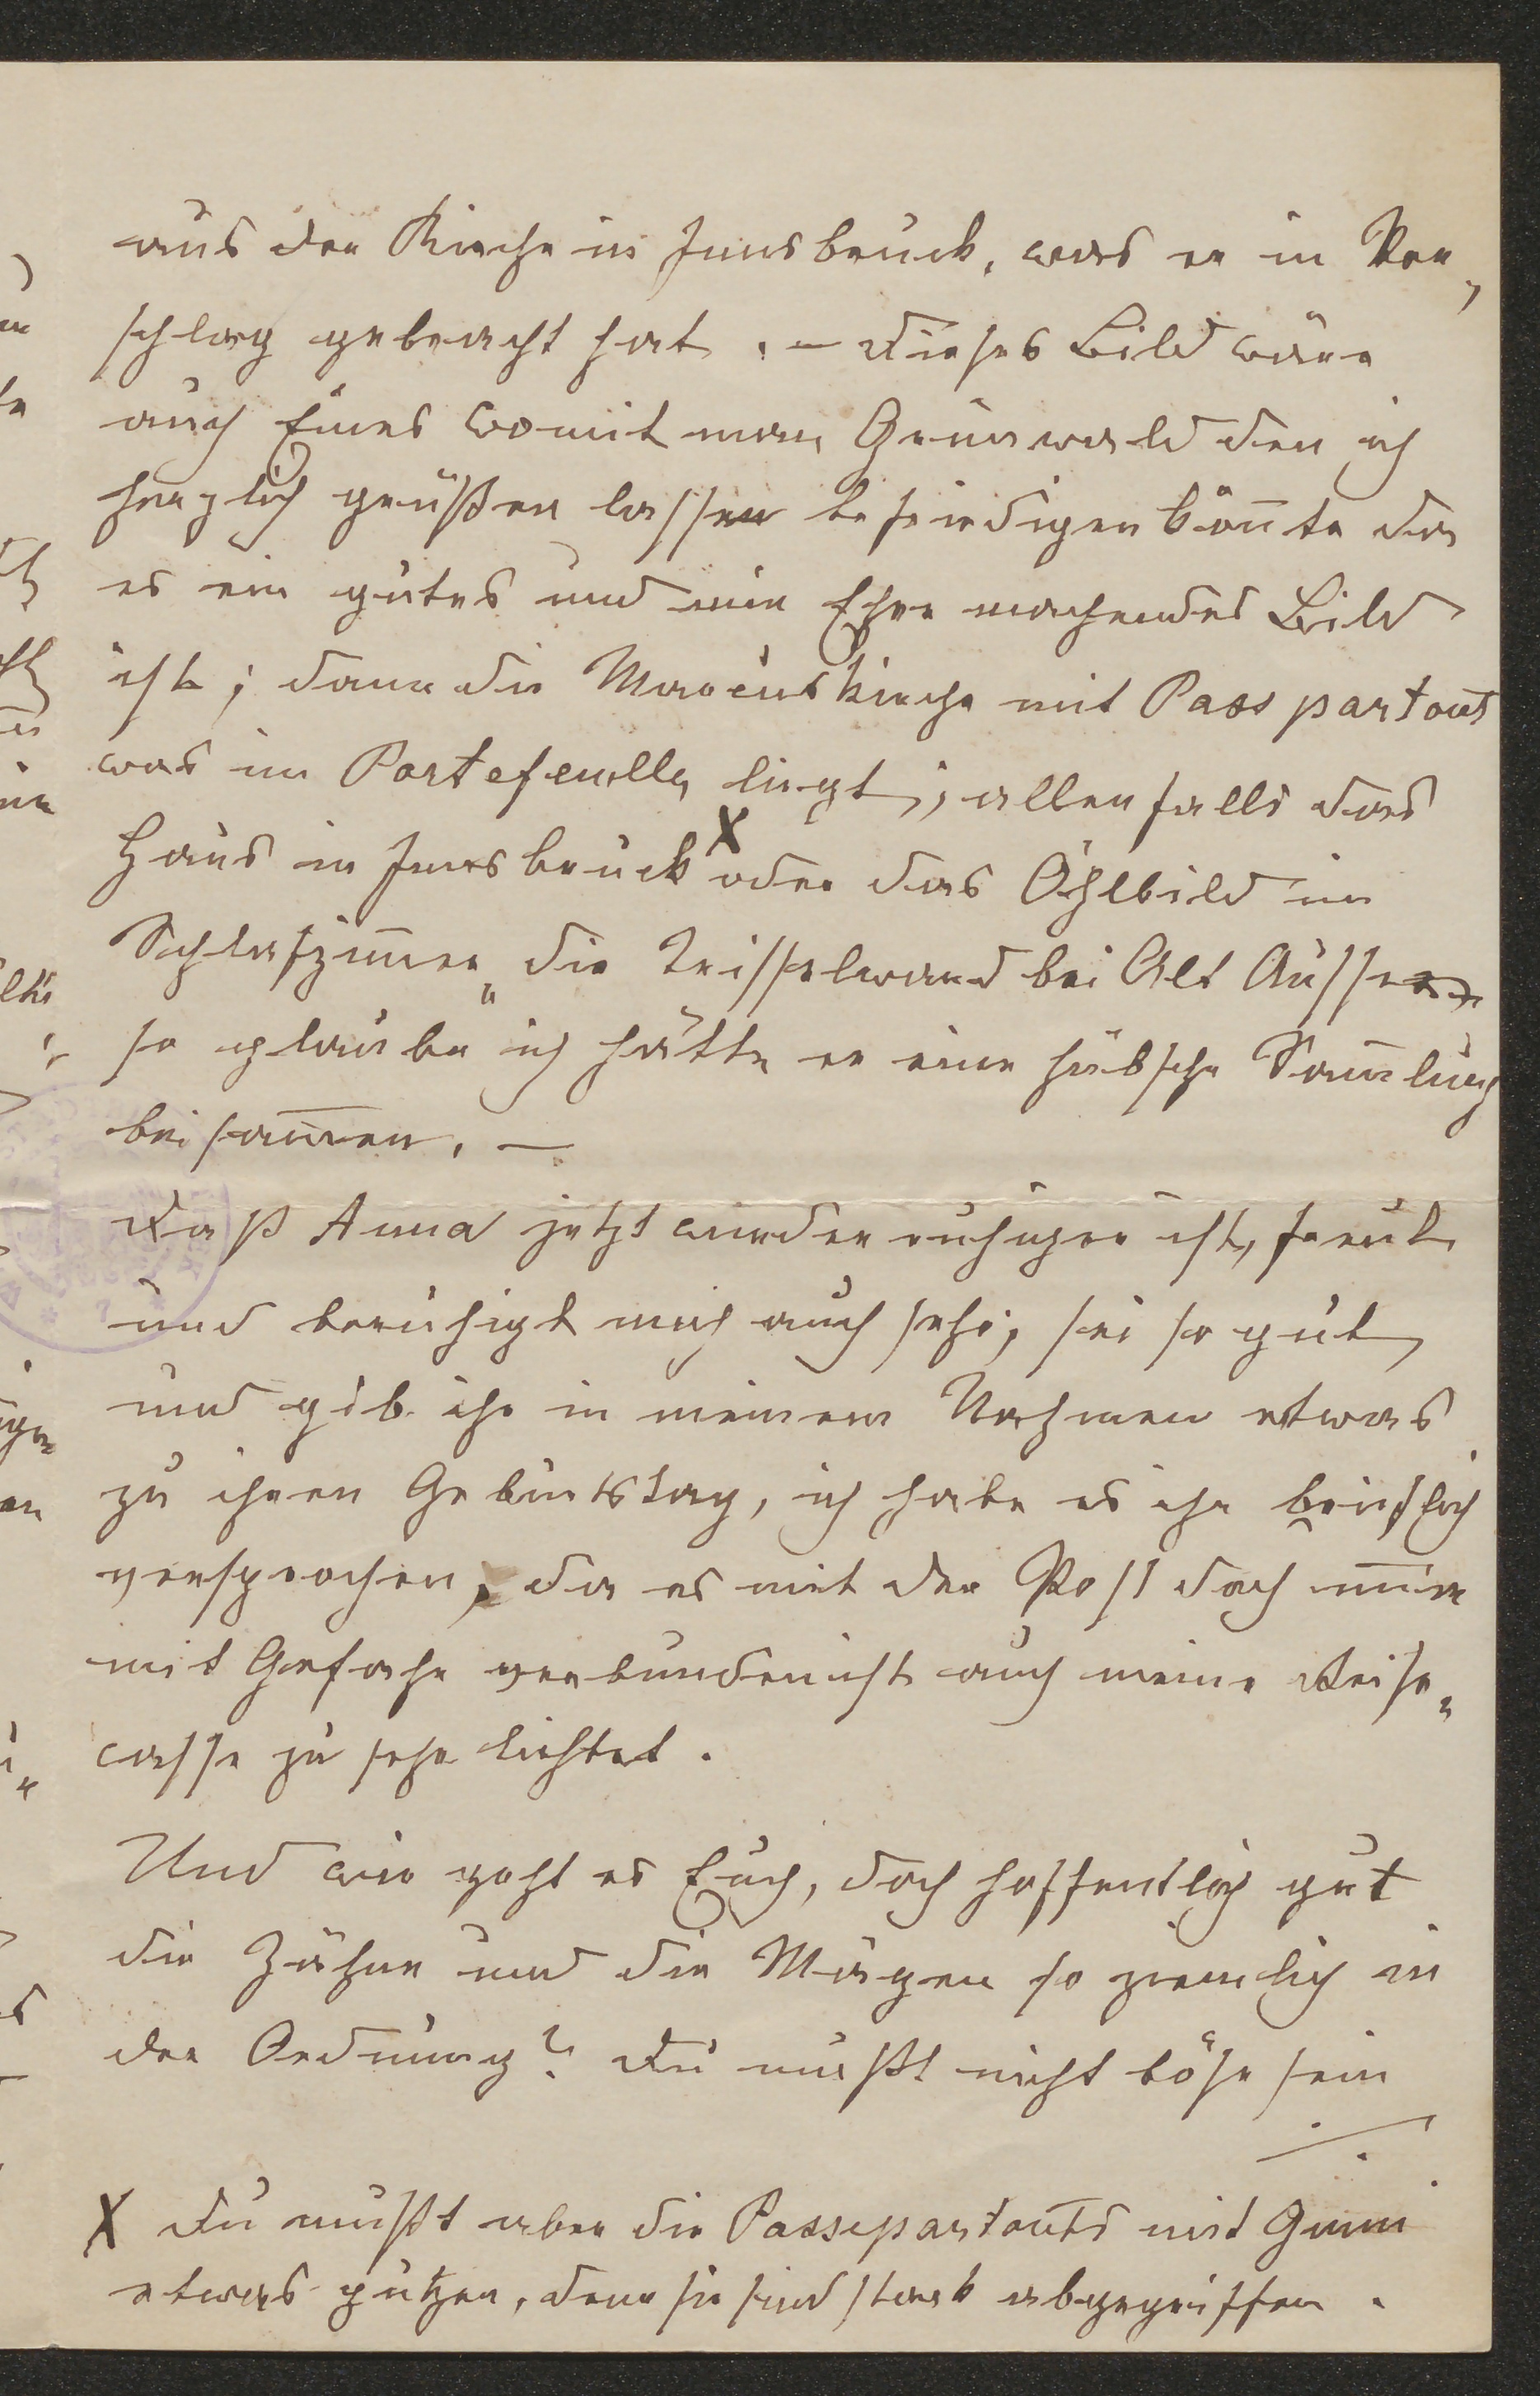 aus der Kirche in Innsbruck, was er in Vor„
schlag gebracht hat. – Dieses Bild wäre
auch Eines womit man Grünwald den ich
herzlich grüßen lassen befriedigen kön̄te da
es ein gutes und mir Ehre machendes Bild
ist; dann die Marcuskirche mit Passpartout
was im Portefeulle liegt; allenfalls das
Haus in Innsbruck X oder das Öhlbild im
Schlafzim̄er „die Trisselwand bei Alt Aussee
so glaube ich hätte er eine hübsche Sam̄lung
beisam̄en. –
Daß Anna jetzt wieder ruhiger ist, freut
und beruhigt mich auch sehr; sei so gut,
und gib ihr in meinem Nahmen etwas
zu ihren Geburtstag, ich habe es ihr brieflich
versprochen, da es mit der Post doch im̄er
mit Gefahr verbunden ist auch meine Reise„
casse zu sehr lichtet.
Und wie geht es Euch, doch hoffentlich gut
die Zähne und die Mägen so ziemlich in
der Ordnung? Du mußt nicht böse sein
./.
X Du mußt aber die Passepartouts mit Gum̄i
etwas putzen, denn sie sind stark abgegriffen.